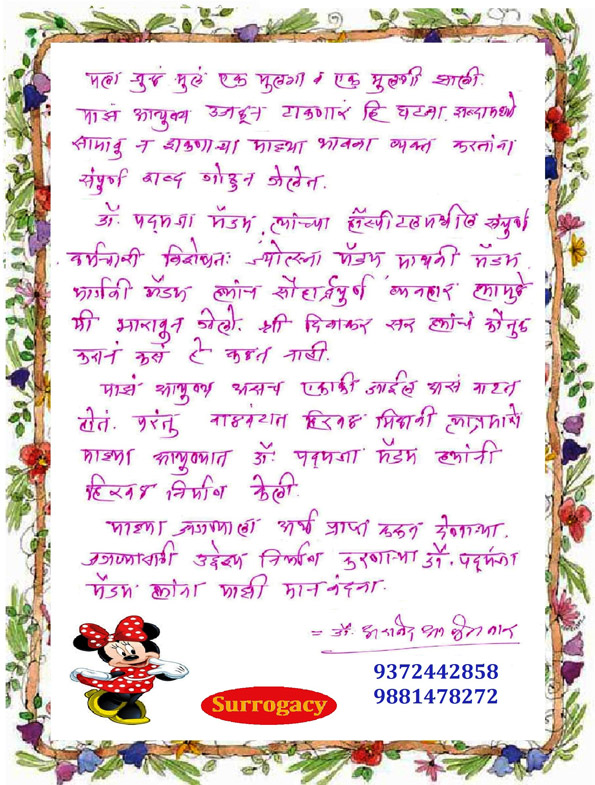 मला जुळं मुलं एक मुलगा व एक मुलगी झाली.
माझं आयुष्य उजळून टाकणारं हि घटना. शब्दामध्ये
सामावु न शकणाऱ्या माझ्या भावना व्यक्त करतांना
संपुर्ण शब्द गोठुन गेलेत.
डॉ. पद्मजा मॅडम, त्यांच्या हॉस्पीटलमधील संपुर्ण
कर्मचारी विशेषतः ज्योत्स्ना मॅडम, माधवी मॅडम,
भार्गवी मॅडम ह्यांच सौहार्द्रपुर्ण व्यवहार ह्यामुळे
मी भारावुन गेलो. श्री दिवाकर सर ह्यांचं कौतुक
करावं कसं हे कळत नाही.
माझं आयुष्य असच एकाकी जाईल असं वाटत
होतं. परंतु वाळवंटात हिरवळ मिळावी त्याप्रमाणे
माझ्या आयुष्यात डॉ. पद्मजा मॅडम ह्यांनी
हिरवळ निर्माण केली.
माझ्या जगण्याला अर्थ प्राप्त करुन देणाऱ्या,
जगण्यासाठी उद्देश निर्माण करणाऱ्या डॉ. पद्मजा
मॅडम ह्यांना माझी मानवंदना.
= डॉ.
9372442858
9881478272
Surrogacy